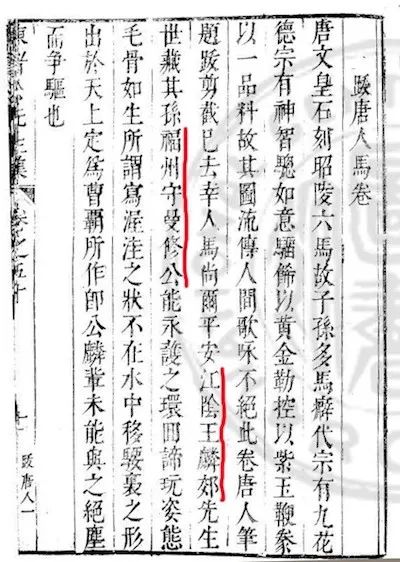 跋唐人馬卷
唐文皇石刻昭陵六馬故子孫多馬癖代宗有九花
德宗有神智驄如意騮餙以黃金勒控以紫玉鞭叅
以一品料故其圖流傳人間歌咏不絕此卷唐人筆
題跋剪截已去幸人馬尚爾平安江陰王麟郊先生
世藏其孫福州守曼修公能永護之環回諦玩姿態
毛骨如生所謂寫渥洼之狀不在水中移騕褭之形
出於天上定爲曹霸所作卽公麟輩未能與之絕塵
而爭驅也
先生集
卷之五十
跋唐人一